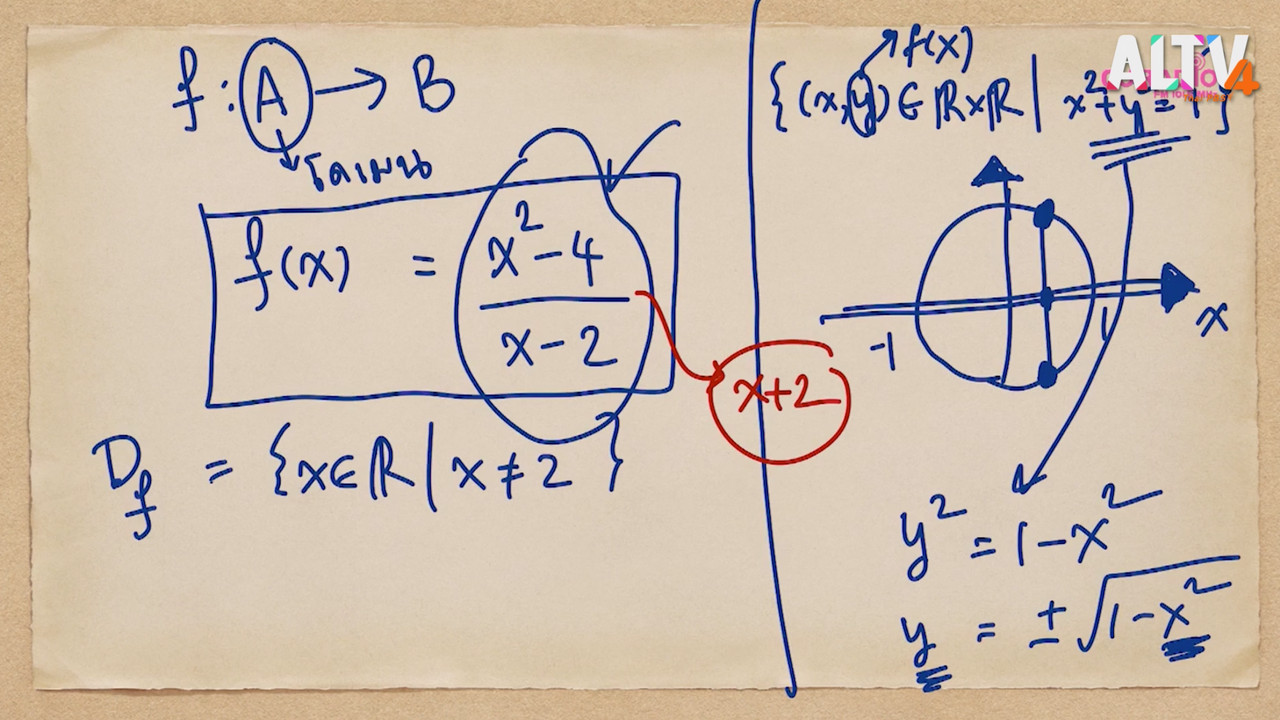 f : A → B
โดเมน
f(x) = x² - 4 / x - 2
x+2
D_f = {x ∈ ℝ | x ≠ 2}
f(x)
{(x, y) ∈ ℝ x ℝ | x² + y² = 1}
-1 1 x
y² = 1 - x²
y = ± √1 - x²
ALTV 4